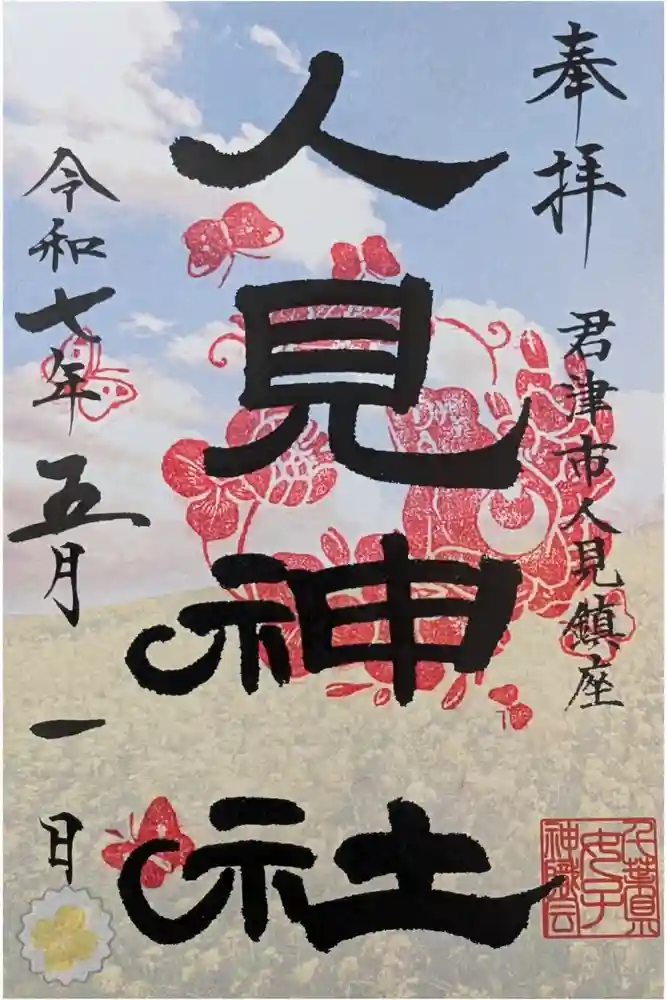 奉拝
君津市人見鎮座
人見神社
令和七年五月一日
千葉県
女子
神職会